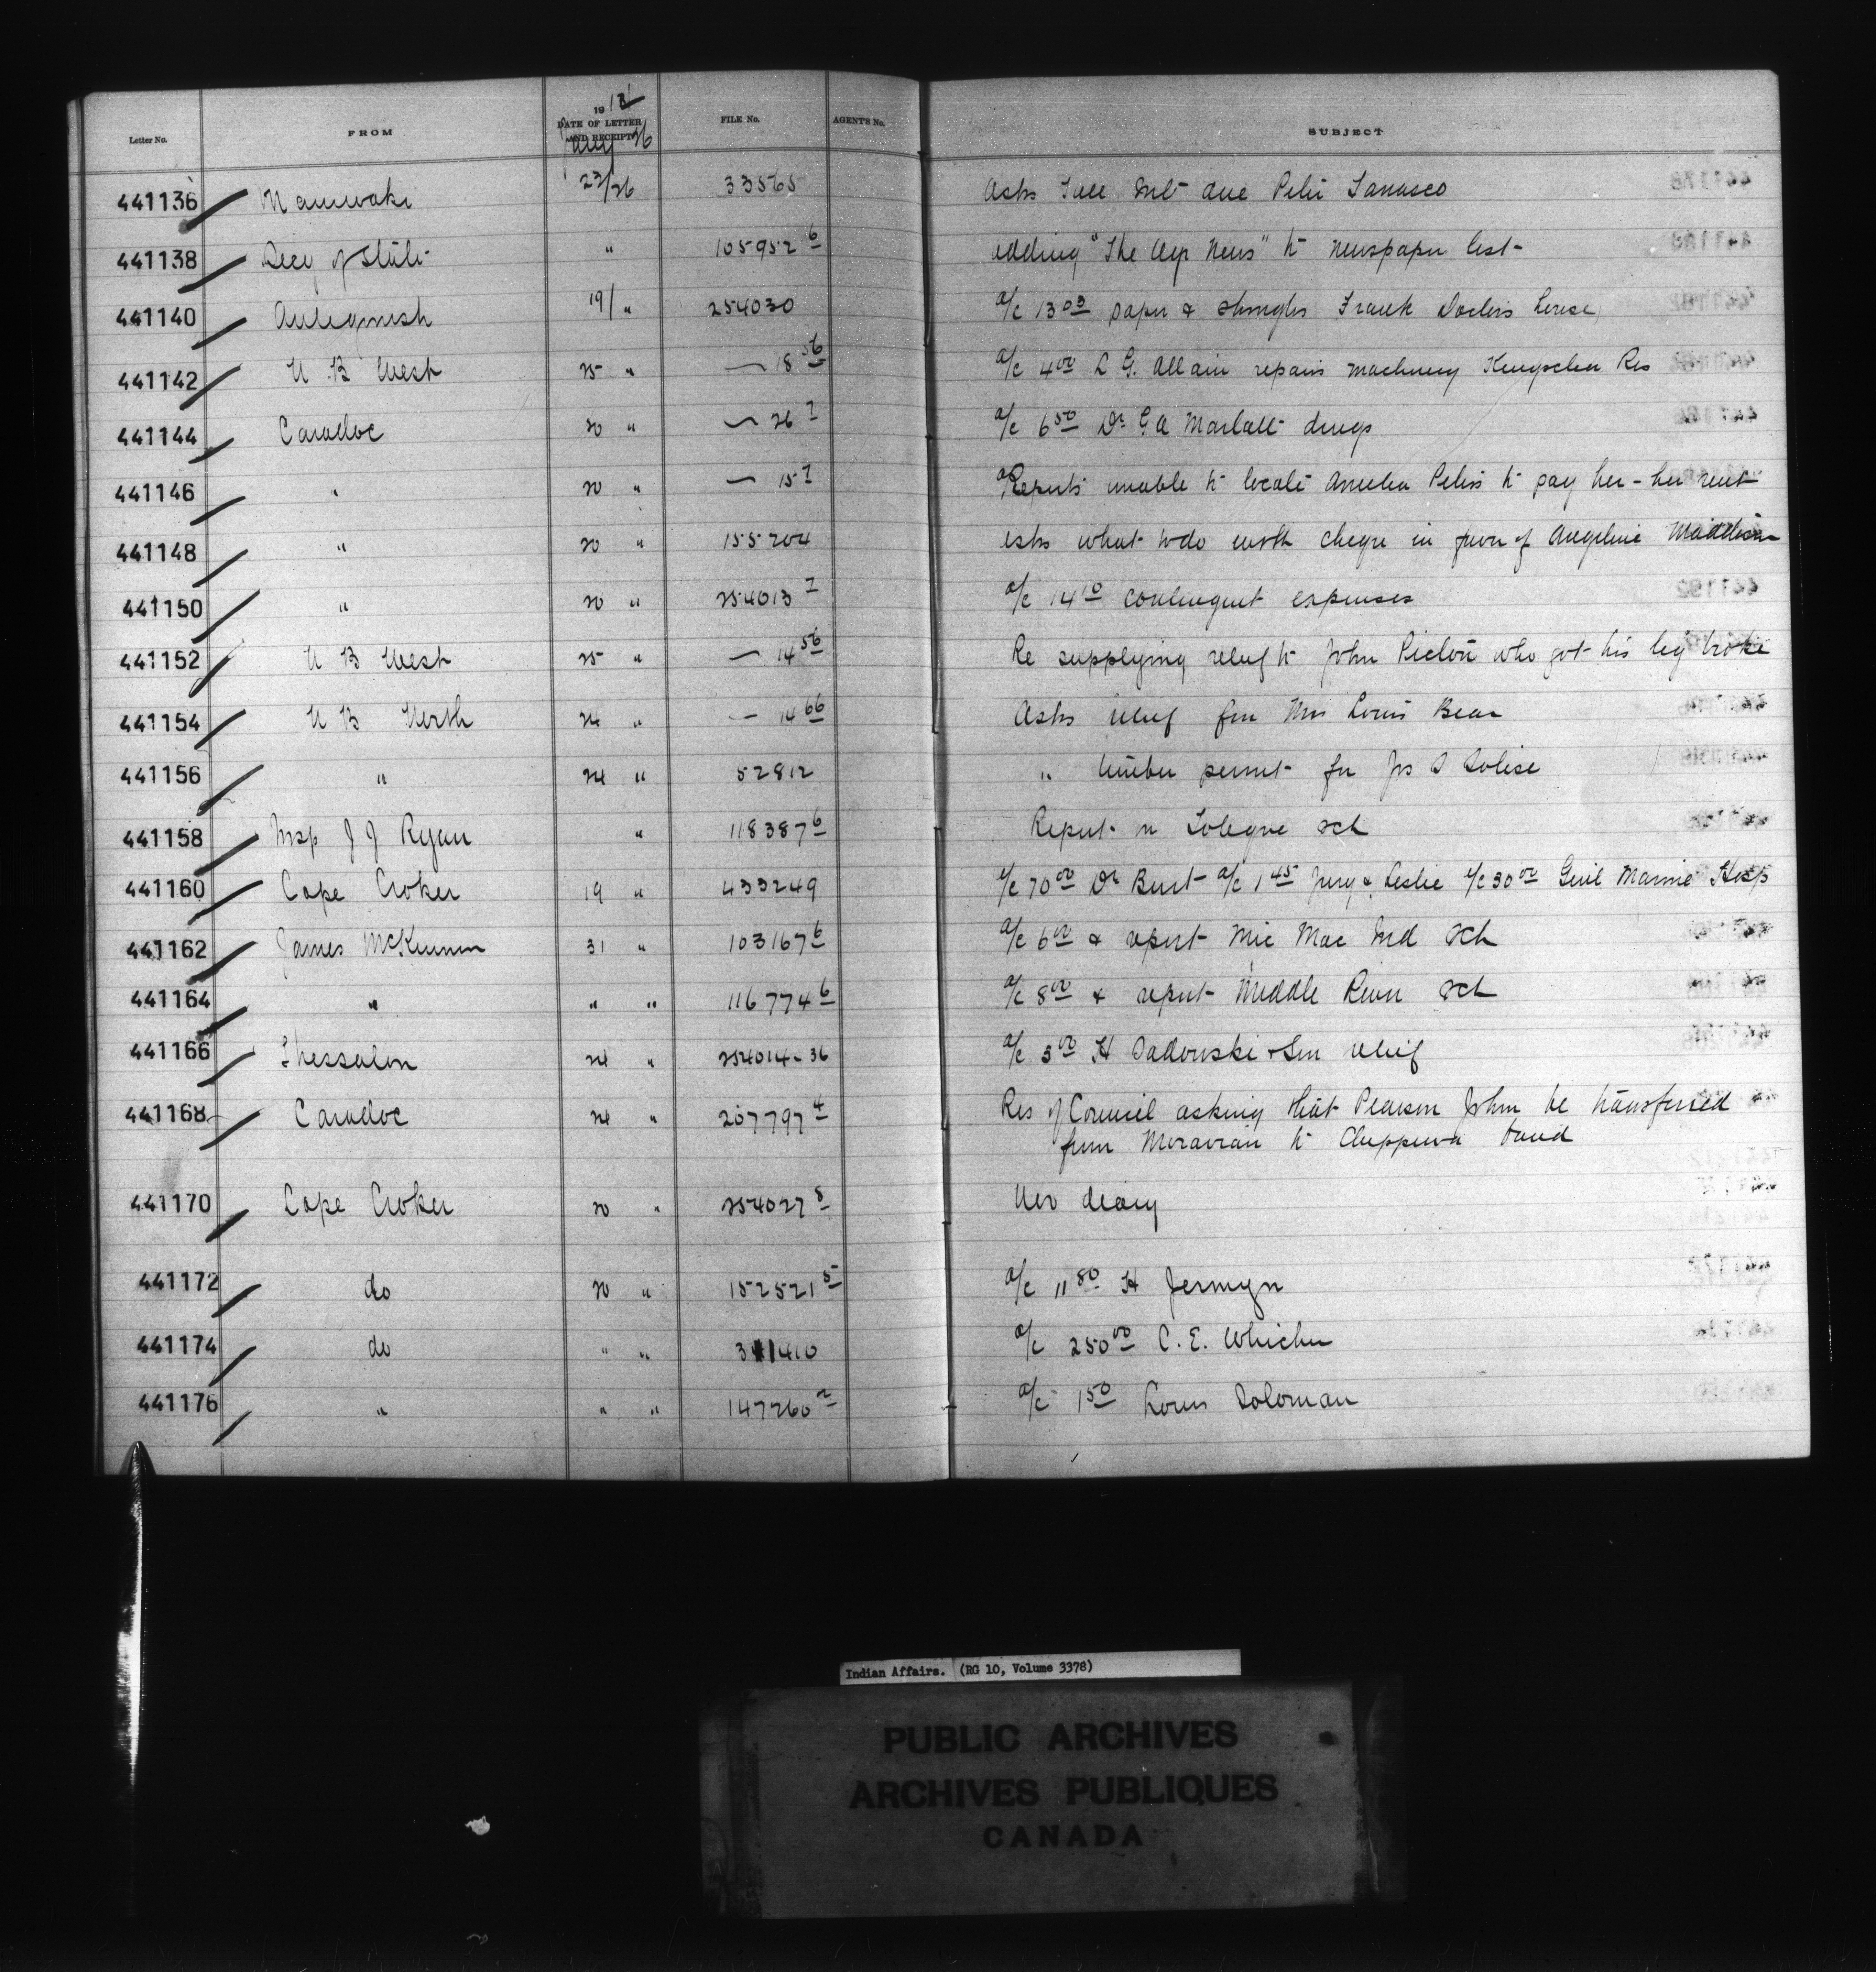 Letter No. FROM 1913 DATE OF LETTER AND RECEIPT FILE No. AGENT'S No. SUBJECT
Jany 26
441136 Maniwaki 23/26 33565 Asks full Int due Peter Tanasco
441138 Secy of State " 105952 6 adding "The News" to newspaper list
441140 Antigonish 19/ " 254030 a/c 13 00 paper & shingles Frank house
441142 N B West 25 " — 18 56 a/c 4 00 L G. Allain repairs machinery Kingsclear Res
441144 Caradoc 20 " — 26 7 a/c 6 50 Dr G A drugs
441146 " 20 " — 15 7 Reports unable to locate Amelia Peters to pay her - her rent
441148 " 20 " 155204 asks what to do with cheque in favor of Angeline Maddison
441150 " 20 " 254013 7 a/c 14 10 contingent expenses
441152 N B West 25 " — 14 56 Re supplying relief to John who got his leg broke
441154 N B North 24 " — 14 66 Asks relief for Mrs Louis Bear
441156 " 24 " 52812 " timber permit for Jos
441158 Insp J J Ryan " 118387 6 Report on Tobique sch
441160 Cape Croker 19 " 433249 a/c 70 00 Dr Burt a/c 1 45 Jury & Leslie a/c 30 00 Genl Marine Hosp
441162 James McKinnon 31 " 103167 6 a/c 6 00 & report Mic Mac Ind Sch
441164 " " " 116774 6 a/c 8 00 & report Middle River Sch
441166 Thessalon 24 " 254014-36 a/c 3 00 H Sadowski & Son relief
441168 Caradoc 24 " 207797 4 Res of Council asking that Pearson John be transferred
from Moravian to Chippewa band
441170 Cape Croker 20 " 254027 8 Nov diary
441172 do 20 " 152521 5 a/c 11 80 H Jermyn
441174 do " " 341410 a/c 250 00 C. E. Whicher
441176 " " " 147260 2 a/c 1 50 Louis Soloman
Indian Affairs. (RG 10, Volume 3378)
PUBLIC ARCHIVES
ARCHIVES PUBLIQUES
CANADA